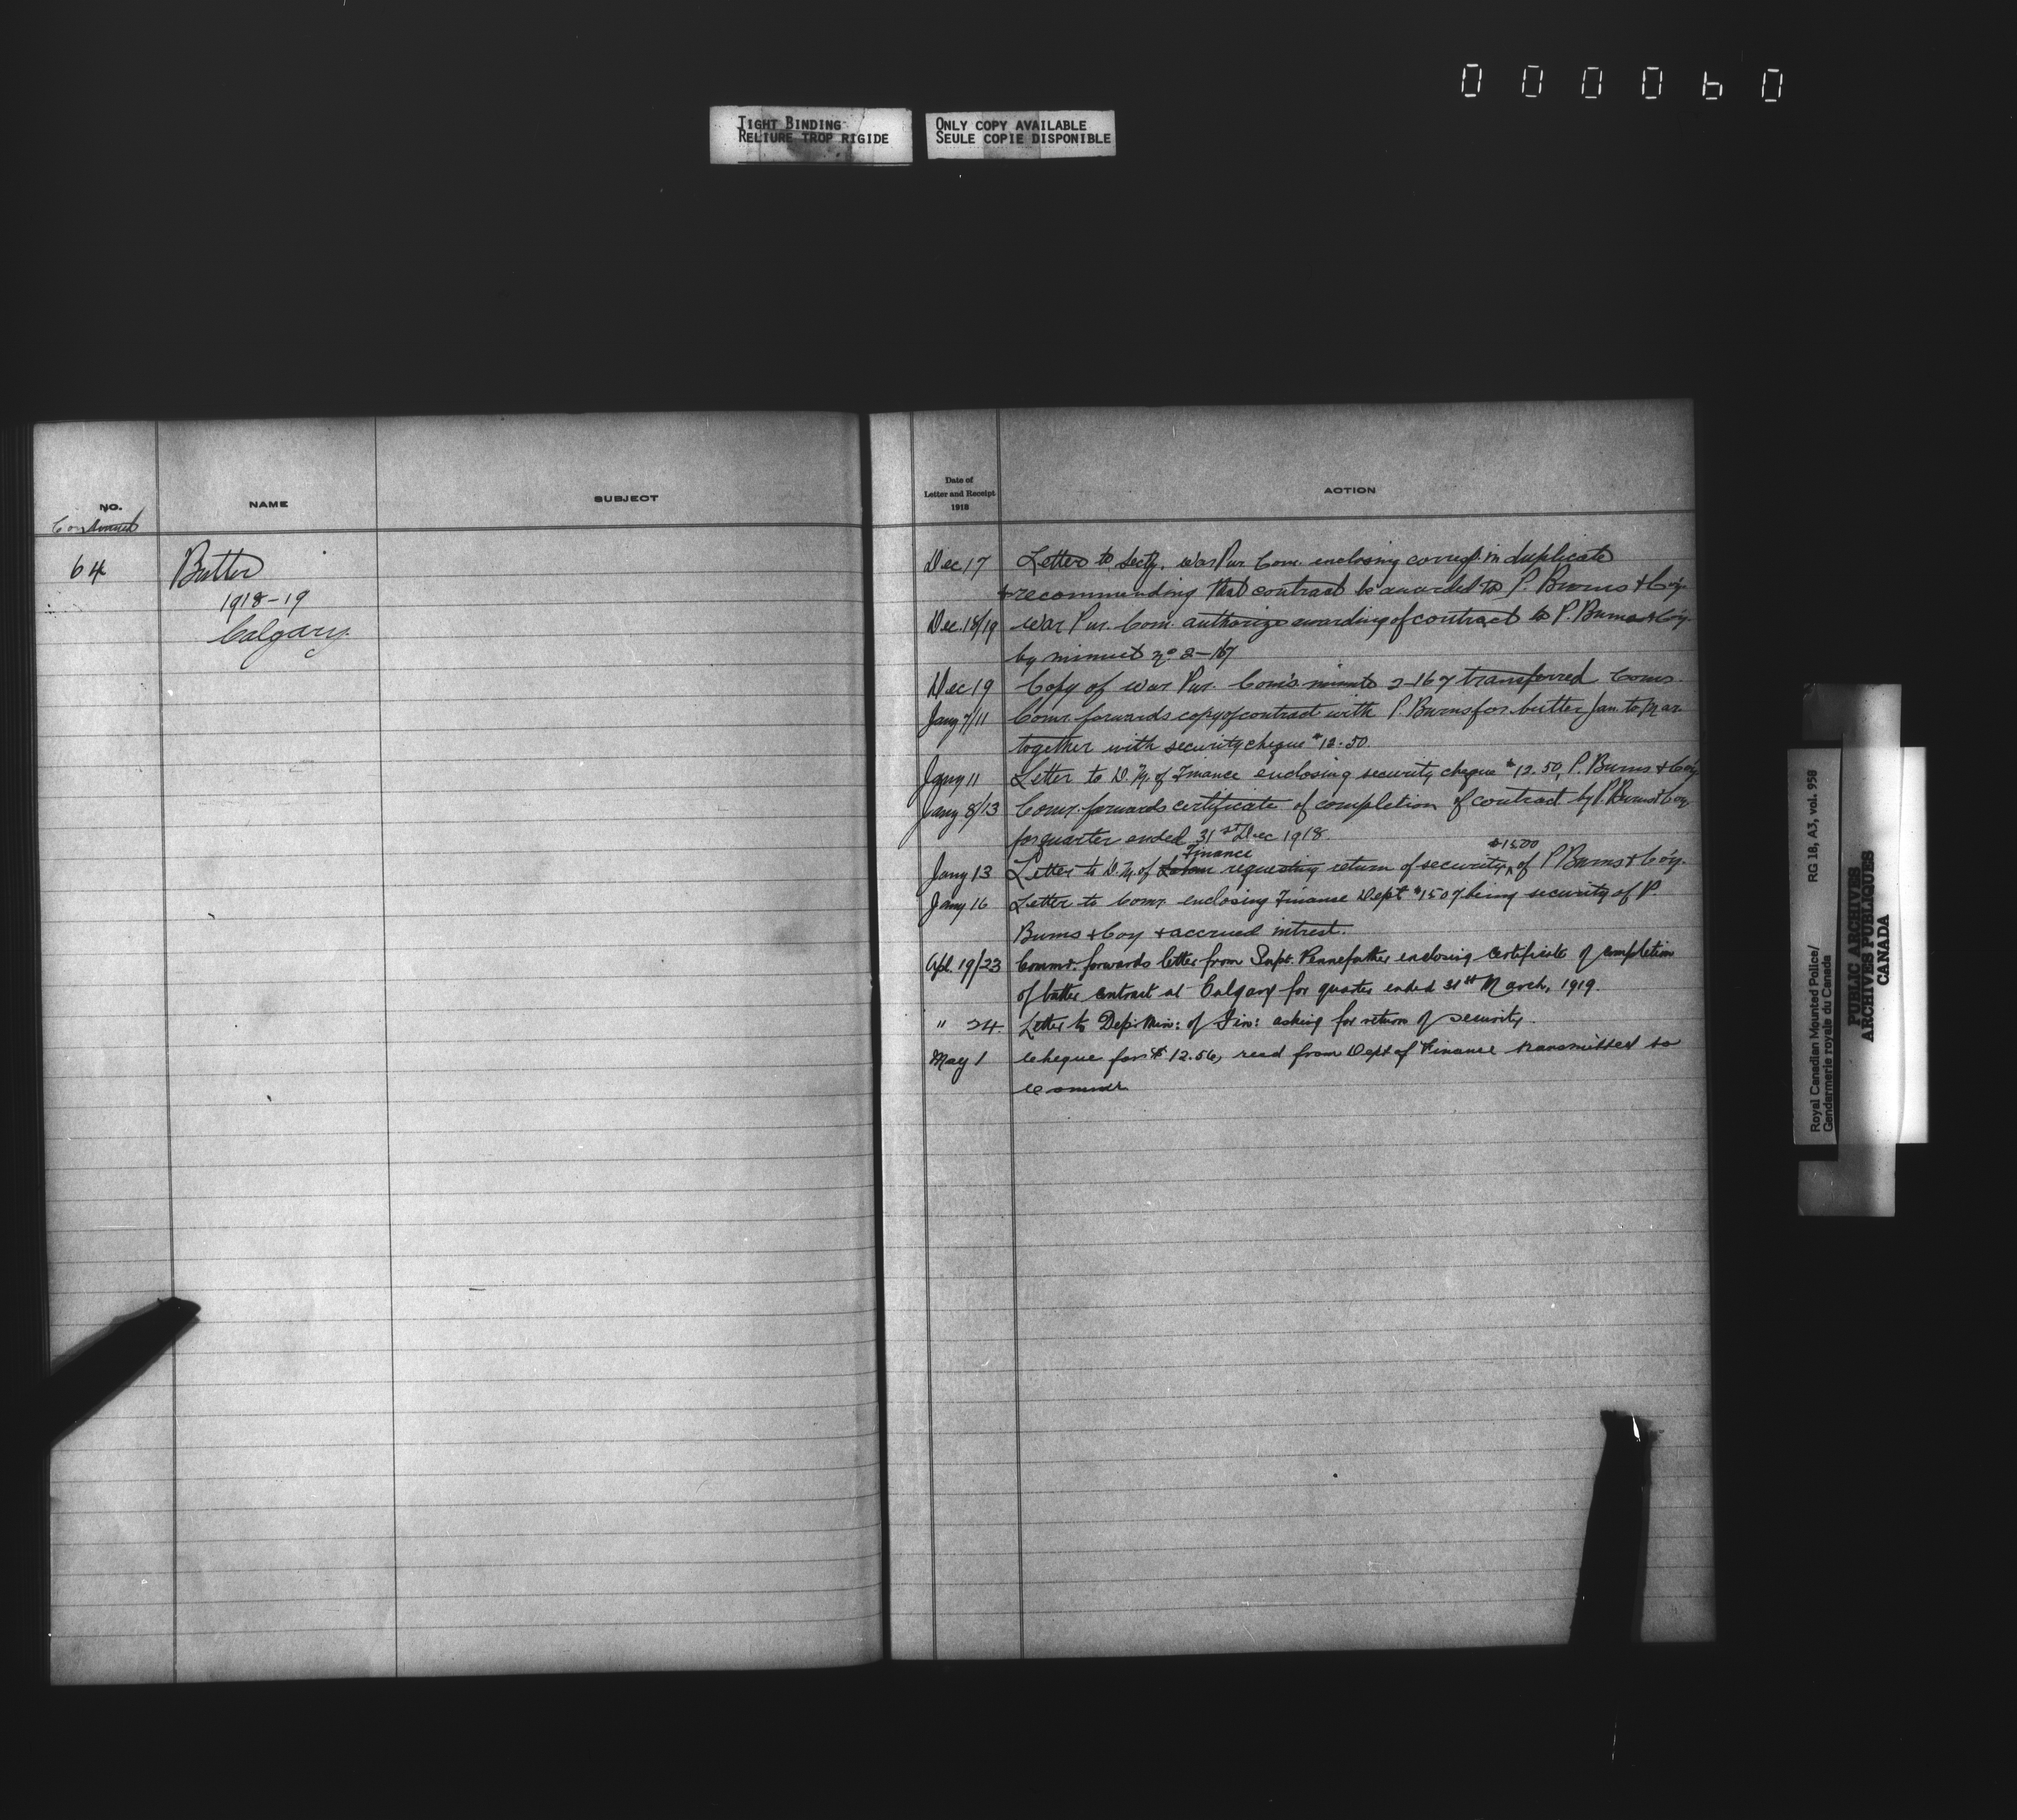 000060
TIGHT BINDING
RELIURE TROP RIGIDE
ONLY COPY AVAILABLE
SEULE COPIE DISPONIBLE
NO.
NAME
SUBJECT
Continued
64
Butter
1918-19
Calgary.
Date of
Letter and Receipt
1918
ACTION
Dec 17 Letter to Secty. War Pur. Com. enclosing corresp. in duplicate
& recommending that contract be awarded to P. Burns & Co'y.
Dec. 18/19 War Pur. Com. authorize awarding of contract to P. Burns & Co'y.
by minuet No. 2-167
Dec 19 Copy of War Pur. Com's minute 2-167 transferred Comr.
Jany 7/11 Comr. forwards copy of contract with P. Burns for butter Jan. to Mar.
together with security cheque $12.50.
Jany 11 Letter to D. M. of Finance enclosing security cheque $12.50, P. Burns & Co'y
Jany 8/13 Comr. forwards certificate of completion of contract by P. Burns & Coy
for quarter ended 31st Dec 1918.
Finance $15.00
Jany 13 Letter to D. M. of requesting return of security of P Burns & Co'y.
Jany 16 Letter to Comr. enclosing Finance Dept $15.07 being security of P.
Burns & Coy + accrued intrest.
Apl. 19/23 Commr. forwards letter from Supt. Pennefather enclosing certificate of completion
of butter contract at Calgary for quarter ended 31st March, 1919.
" 24. Letter to Dep: Min: of Fin: asking for return of security.
May 1 Cheque for $12.56, recd from Dept of Finance transmitted to
Commr
Royal Canadian Mounted Police/ RG 18, A3, vol. 958
Gendarmerie royale du Canada
PUBLIC ARCHIVES
ARCHIVES PUBLIQUES
CANADA